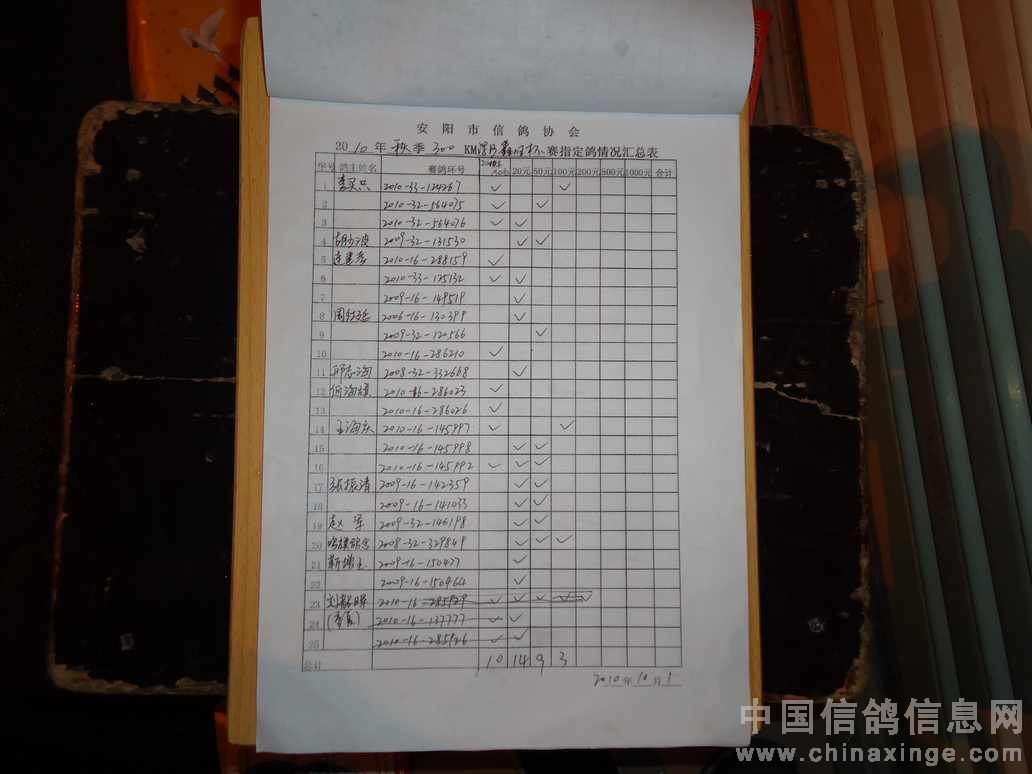 安阳市信鸽协会
2010年秋季300KM 赛指定鸽情况汇总表
序号 鸽主姓名 赛鸽环号 20元 50元 100元 200元 500元 1000元 合计
1 2010-33-124267 ✓ ✓
2 2010-32-564075 ✓ ✓
3 2010-32-564076 ✓ ✓
4 2009-32-131530 ✓ ✓
5 2010-16-288159 ✓
6 2010-33-125132 ✓ ✓
7 2009-16-149519 ✓
8 2006-16-130399 ✓
9 2009-32-120566 ✓
10 2010-16-286210 ✓
11 2008-32-332668 ✓
12 2010-16-286023 ✓
13 2010-16-286026 ✓
14 王海庆 2010-16-145997 ✓ ✓
15 2010-16-145998 ✓ ✓
16 2010-16-145992 ✓ ✓ ✓
17 张振清 2009-16-142359 ✓ ✓
18 2009-16-141033 ✓ ✓
19 赵军 2009-32-146198 ✓ ✓
20 2008-32-329849 ✓ ✓ ✓
21 2009-16-150427 ✓
22 2009-16-150464 ✓
23 2010-16-285929 ✓ ✓ ✓ ✓ ✓
24 2010-16-137777 ✓ ✓
25 2010-16-285926 ✓ ✓
总计 10 14 9 3
2010年10月1
中国信鸽信息网
www.chinaxinge.com